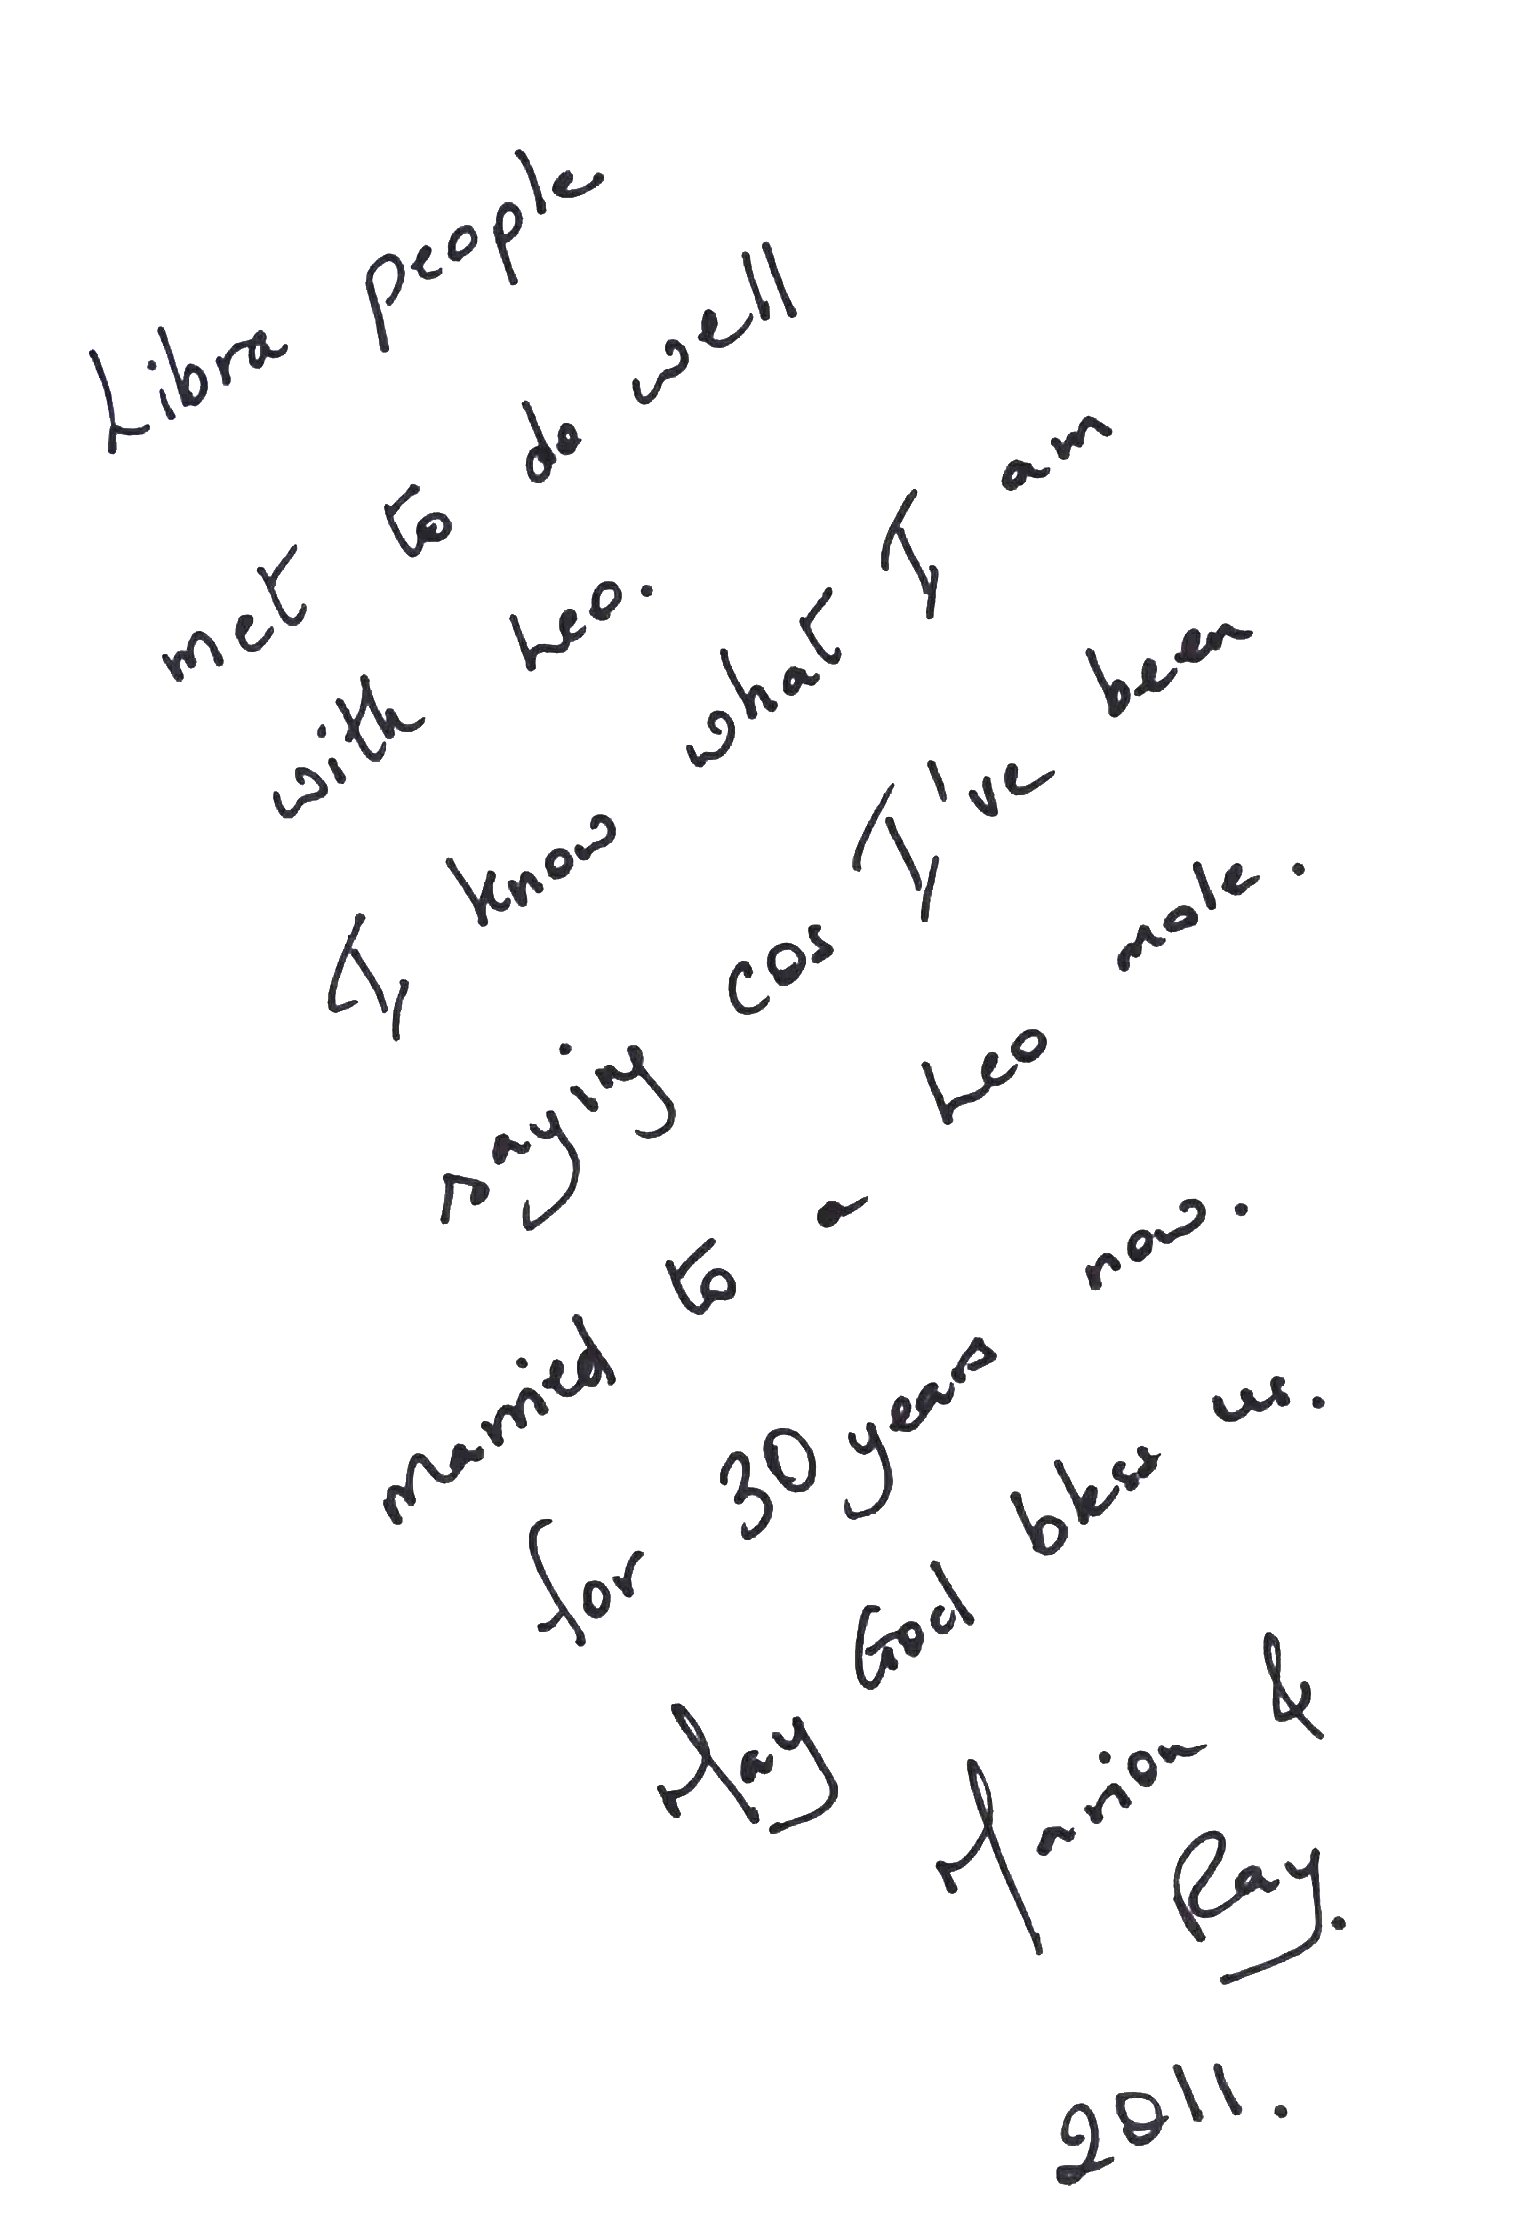 Libra people
met to do well
with Leo.
I know what I am
saying cos I've been
married to a Leo male.
for 30 years now.
May God bless us.
Marion &
Ray.
2011.